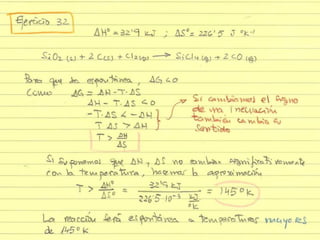 Ejercicio 32
ΔHº = 32'9 kJ ; ΔSº = 226'5 J ºK⁻¹
SiO₂(s) + 2 C(s) + Cl₂(g) → SiCl₄(g) + 2 CO(g)
Para que sea espontánea, ΔG < 0
Como ΔG = ΔH - T·ΔS
ΔH - T·ΔS < 0
- T·ΔS < - ΔH
T ΔS > ΔH
T > ΔH/ΔS
Si cambiamos el signo
de una inecuación
también cambia su
sentido
Si suponemos que ΔH, ΔS no cambian significativamente
con la temperatura, hacemos la aproximación
T > ΔHº/ΔSº = 32'9 kJ / 226'5·10⁻³ kJ/ºK = 145ºK
La reacción será espontánea a temperaturas mayores
de 145ºK